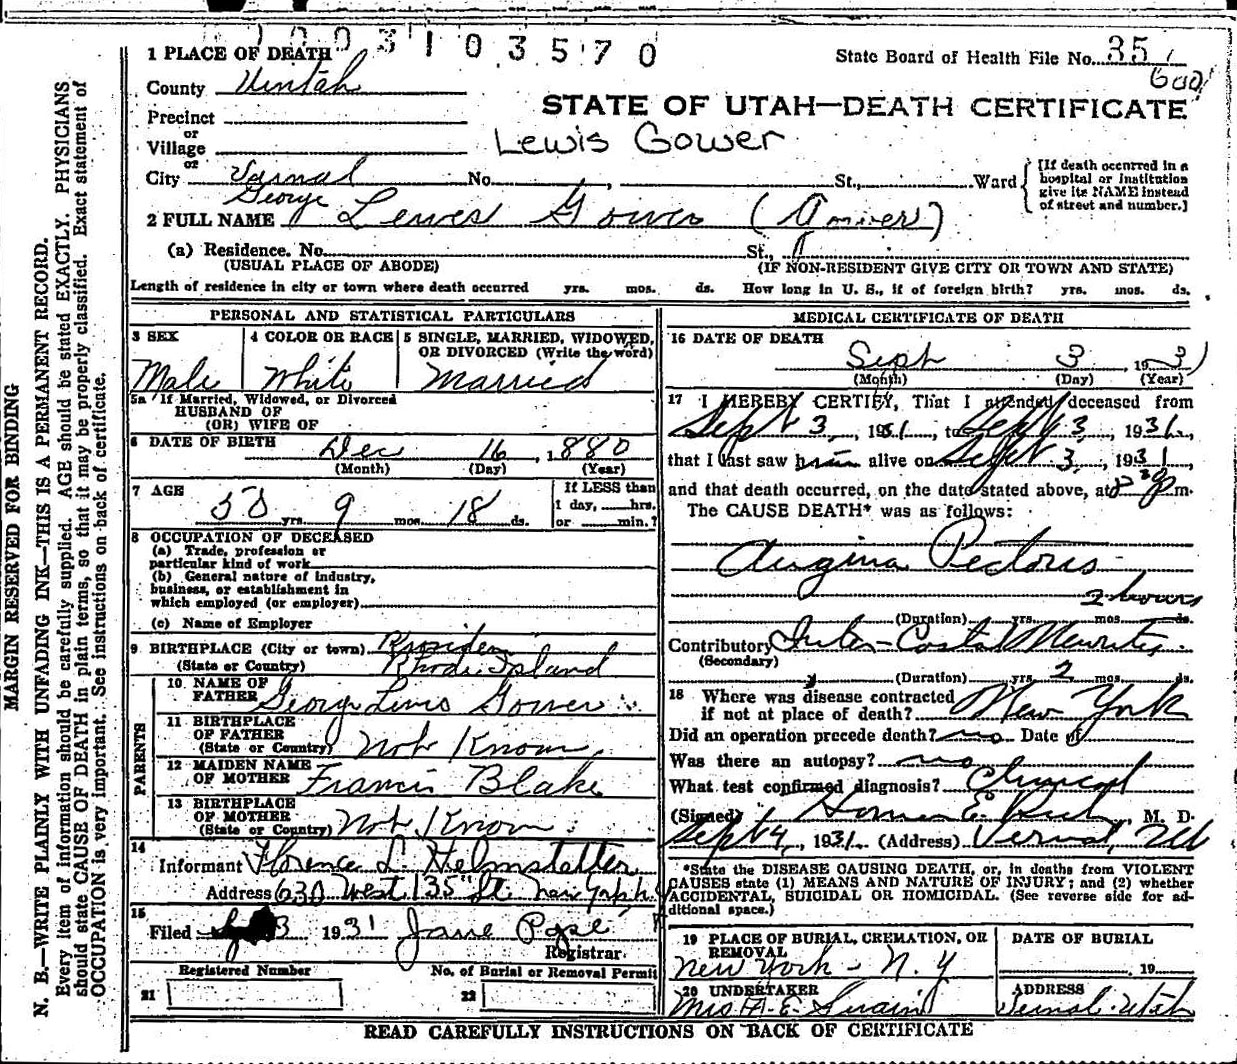 1003103570
1 PLACE OF DEATH
State Board of Health File No. 35
600
County Uintah
STATE OF UTAH—DEATH CERTIFICATE
Precinct
or
Village
Lewis Gower
or
City Vernal No. , St., Ward
[If death occurred in a
hospital or institution
give its NAME instead
of street and number.]
George
2 FULL NAME Lewes Gower
(a) Residence. No. St.,
(USUAL PLACE OF ABODE) (IF NON-RESIDENT GIVE CITY OR TOWN AND STATE)
Length of residence in city or town where death occurred yrs. mos. ds. How long in U. S., if of foreign birth? yrs. mos. ds.
PERSONAL AND STATISTICAL PARTICULARS
3 SEX
Male
4 COLOR OR RACE
White
5 SINGLE, MARRIED, WIDOWED,
OR DIVORCED (Write the word)
Married
5a If Married, Widowed, or Divorced
HUSBAND OF
(OR) WIFE OF
6 DATE OF BIRTH Dec 16, 1880
(Month) (Day) (Year)
7 AGE
50 yrs. 9 mos. 18 ds.
If LESS than
1 day, hrs.
or min.?
8 OCCUPATION OF DECEASED
(a) Trade, profession or
particular kind of work
(b) General nature of industry,
business, or establishment in
which employed (or employer)
(c) Name of Employer
9 BIRTHPLACE (City or town)
(State or Country) Rhode Island
PARENTS
10 NAME OF
FATHER George Lewis Gower
11 BIRTHPLACE
OF FATHER
(State or Country) Not Know
12 MAIDEN NAME
OF MOTHER Francis Blake
13 BIRTHPLACE
OF MOTHER
(State or Country) Not Know
14
Informant Florence L. Helmstetter
Address 630 West 135" St. New York
15
Filed 3 1931 Jane Pope
Registrar
Registered Number
No. of Burial or Removal Permit
21
22
MEDICAL CERTIFICATE OF DEATH
16 DATE OF DEATH
Sept 3, 193
(Month) (Day) (Year)
17 I HEREBY CERTIFY, That I attended deceased from
Sept 3, 1931, to Sept 3, 1931,
that I last saw him alive on Sept 3, 1931,
and that death occurred, on the date stated above, at m.
The CAUSE DEATH* was as follows:
Angina Pectoris
2 hours
(Duration) yrs. mos. ds.
Contributory Inter-Costal Neuritis
(Secondary)
(Duration) yrs. 2 mos. ds.
18 Where was disease contracted
if not at place of death? New York
Did an operation precede death? no Date of
Was there an autopsy? no
What test confirmed diagnosis? Clinical
(Signed) Homer E. Rich, M. D.
Sept 4, 1931 (Address) Vernal, Ut
*State the DISEASE CAUSING DEATH, or, in deaths from VIOLENT
CAUSES state (1) MEANS AND NATURE OF INJURY; and (2) whether
ACCIDENTAL, SUICIDAL OR HOMICIDAL. (See reverse side for ad-
ditional space.)
19 PLACE OF BURIAL, CREMATION, OR
REMOVAL
New York - N. Y
DATE OF BURIAL
, 19
20 UNDERTAKER
Mrs A. E. Swain
ADDRESS
Vernal - Utah
READ CAREFULLY INSTRUCTIONS ON BACK OF CERTIFICATE
MARGIN RESERVED FOR BINDING
N. B.—WRITE PLAINLY WITH UNFADING INK—THIS IS A PERMANENT RECORD.
Every item of information should be carefully supplied. AGE should be stated EXACTLY. PHYSICIANS
should state CAUSE OF DEATH in plain terms, so that it may be properly classified. Exact statement of
OCCUPATION is very important. See instructions on back of certificate.